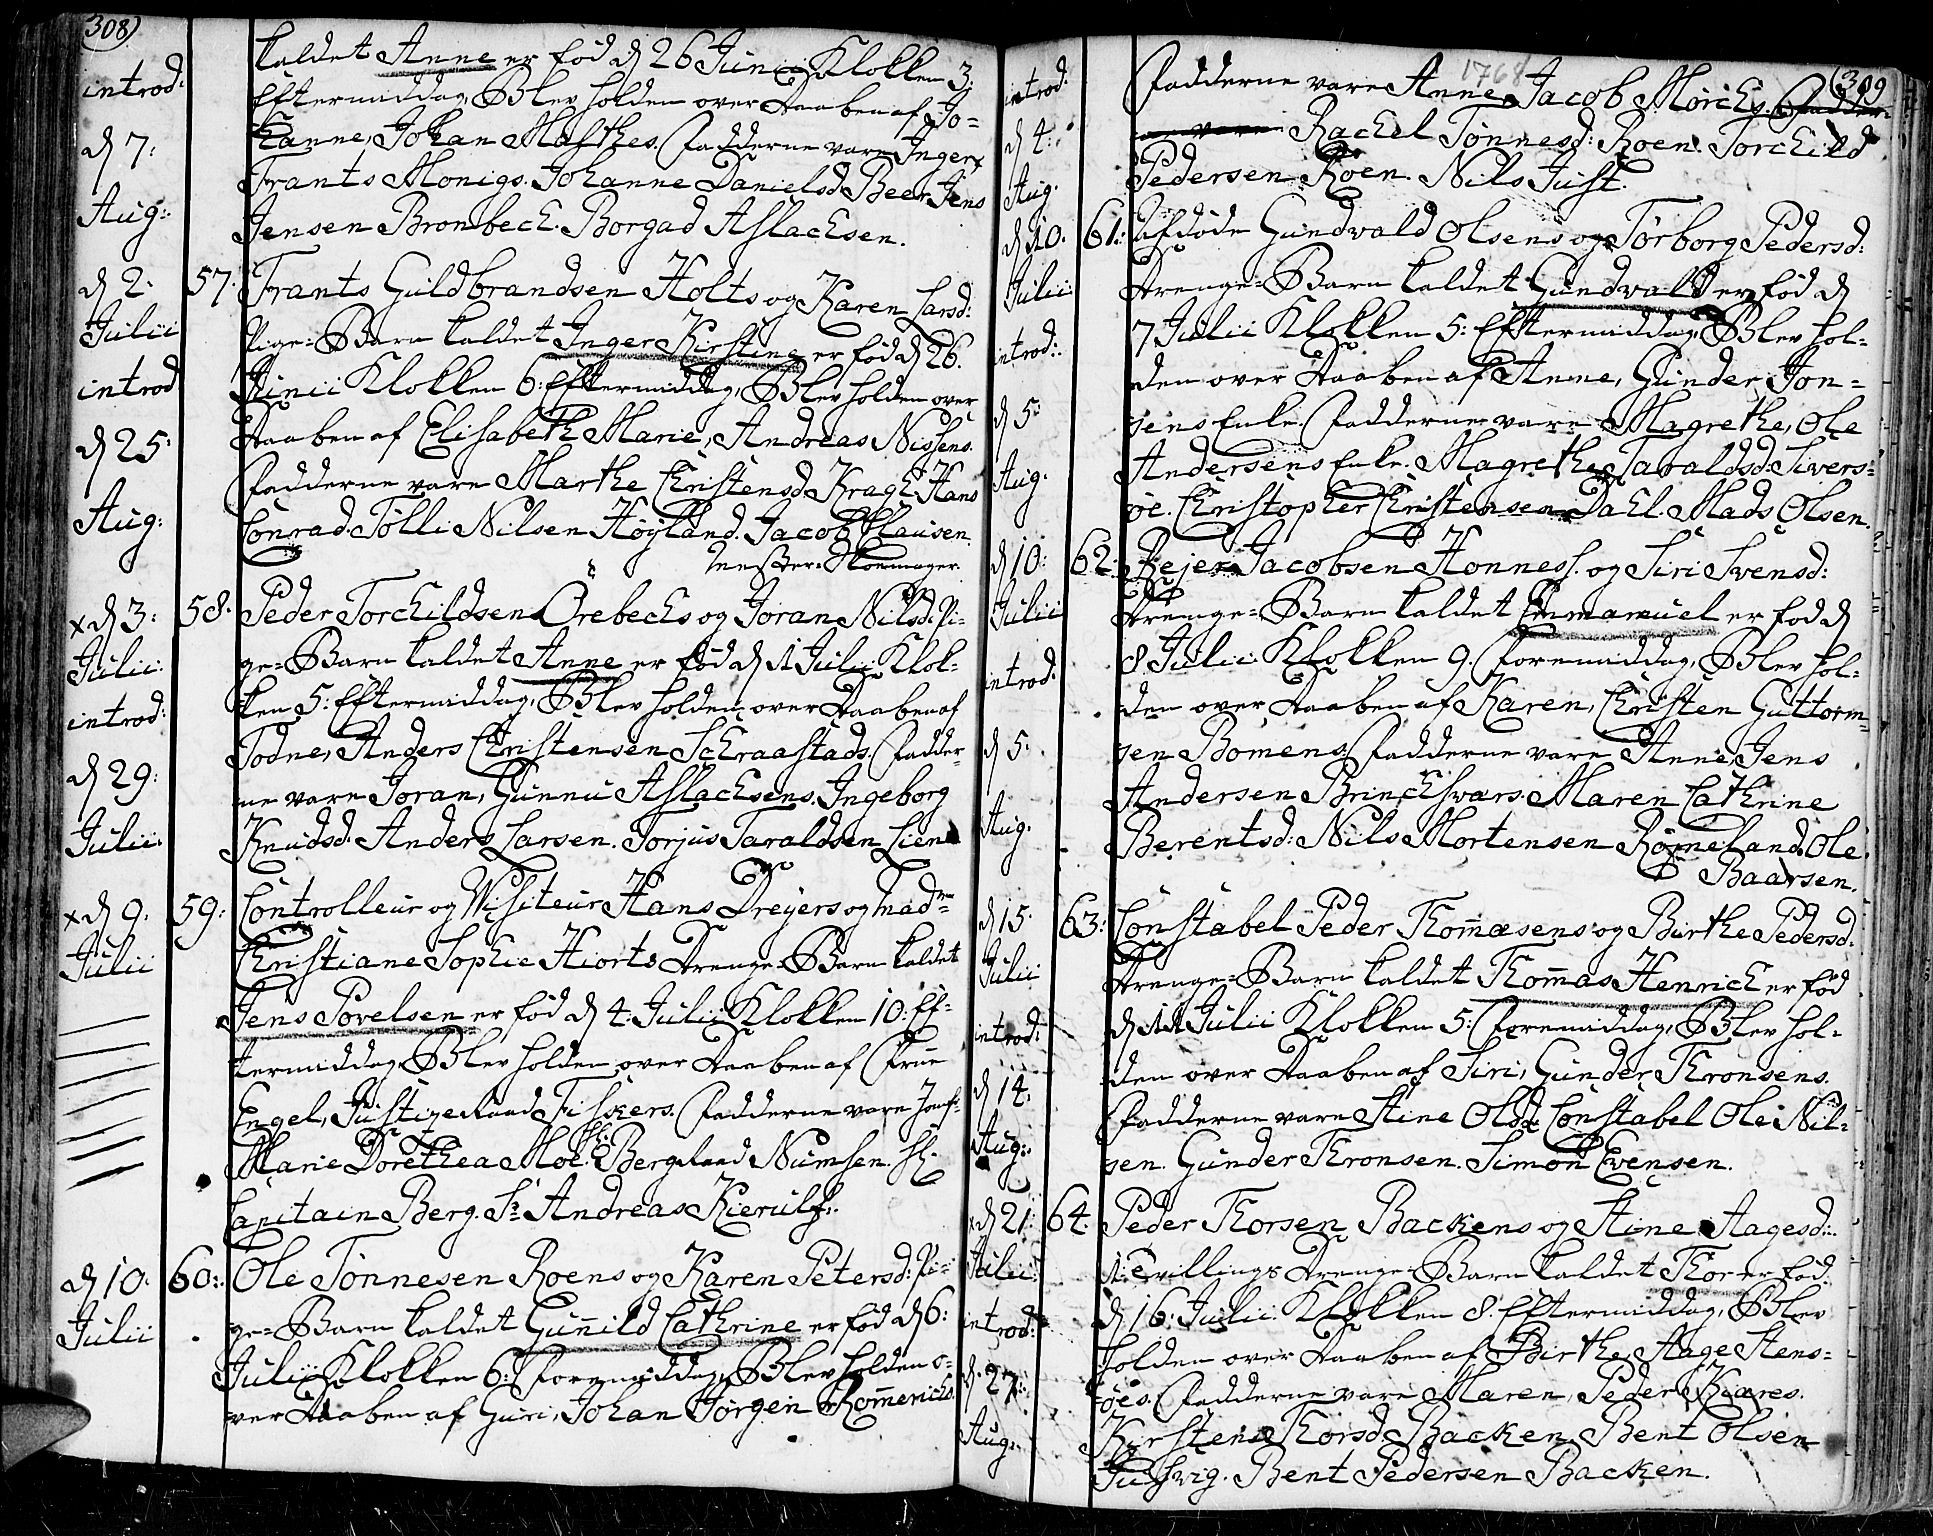 308)
introd:
d 7:
Aug:
kaldet Anne er fød d 26 Junii Klokken 3.
Eftermiddag, Blev holden over Daaben af Jo-
hanne, Johan Matthes. Fadderne vare Inger,
Frants Monigs. Johanne Danielsd Beer. Jens
Jensen Brombech. Borgad Aslachsen.
d 2.
Julii
introd
d 25:
Aug:
57. Frants Guldbrandsen Holts og Karen Larsd:
Pige-Barn kaldet Inger Kirstine er fød d 26.
Junii Klokken 6: Eftermiddag, Blev holden over
Daaben af Elisabeth Marie, Andreas Nissens.
Fadderne vare Marthe Christensd Kragh. Hans
Conrad. Tølli Nilsen Høyland. Jacob Clausen
Mester-Skoemager.
x d 3:
Julii:
introd:
d 29:
Julii:
58. Peder Torchildsen Orebechs og Joran Nilsd: Pi-
ge-Barn kaldet Anne er fød d 1 Julii Klok-
ken 5: Eftermiddag, Blev holden over Daaben af
Todne, Anders Christensen Schraastads. Fadder-
ne vare Joran, Gunnu Aslachsens. Ingeborg
Knudsd. Anders Larsen. Torjus Taraldsen Lien
x d 9:
Julii
59: Controlleur og Visiteur Hans Dreyers og Mad
Christiane Sophie Hiorts Drenge-Barn kaldet
Jens Povelsen er fød d 4: Julii Klokken 10: Ef-
termiddag, Blev holden over Daaben af Frue
Engel, Justiceraad Fiskers. Fadderne vare Jomf:
Marie Dorethea Moe. Hr: Bergraad Numsen. Hr:
Capitain Berg. Sr: Andreas Kierulf.
d 10:
Julii
60: Ole Tønnesen Roens og Karen Petersd: Pi-
ge-Barn kaldet Gunnild Cathrine er fød d 6:
Julii Klokken 6: Formiddag, Blev holden o-
ver Daaben af Guri, Johan Jørgen Rommerichs.
1768
(309
introd:
d 4:
Aug.
Fadderne vare Anne, Jacob Mørchs. Fadder-
ne vare Rachel Tønnesd: Roen. Torchild
Pedersen Roen. Nils Just.
d 10:
Julii:
introd:
d 5:
Aug.
61: Afdøde Gundvald Olsens og Tørborg Pedersd:
Drenge-Barn kaldet Gundvald er fød d
7 Julii Klokken 5: Eftermiddag, Blev hol-
den over Daaben af Anne, Gunder Jon-
sens Enke. Fadderne vare Magrethe, Ole
Andersens Enke. Magrethe Taraldsd. Sivers-
øe. Christopher Christensen Dahl. Mads Olsen.
d 10:
Julii
introd:
d 5:
Aug.
62: Rejer Jacobsen Honness. og Siri Svensd:
Drenge-Barn kaldet Emmanuel er fød d
8 Julii Klokken 9. Formiddag, Blev hol-
den over Daaben af Karen, Christen Guttorm-
sen Bomens. Fadderne vare Anne, Jens
Andersen Brinchsvars. Maren Cathrine
Berentsd: Nils Mortensen Røineland. Ole
Baarsen.
d 15.
Julii
introd:
d 14.
Aug:
63: Constabel Peder Thomæsens og Birthe Pedersd:
Drenge-Barn kaldet Thomas Henrich er fød
d 11 Julii Klokken 5: Formiddag, Blev hol-
den over Daaben af Siri, Gunder Thronsens.
Fadderne vare Stine Olsd. Constabel Ole Nil-
sen. Gunder Thronsen. Simon Evensen.
x d 21:
Julii:
introd:
d. 27:
Aug:
64: Peder Thorsen Backens og Stine Aagesd:
1: Tvillings Drenge-Barn kaldet Thor er fød:
d 16: Julii Klokken 8: Eftermiddag, Blev
holden over Daaben af Birthe, Aage Stens-
øes. Fadderne vare Maren, Peder Kiæres.
Kirstene Thorsd. Backen. Bent Olsen
Jusvig. Bent Pedersen Backen.